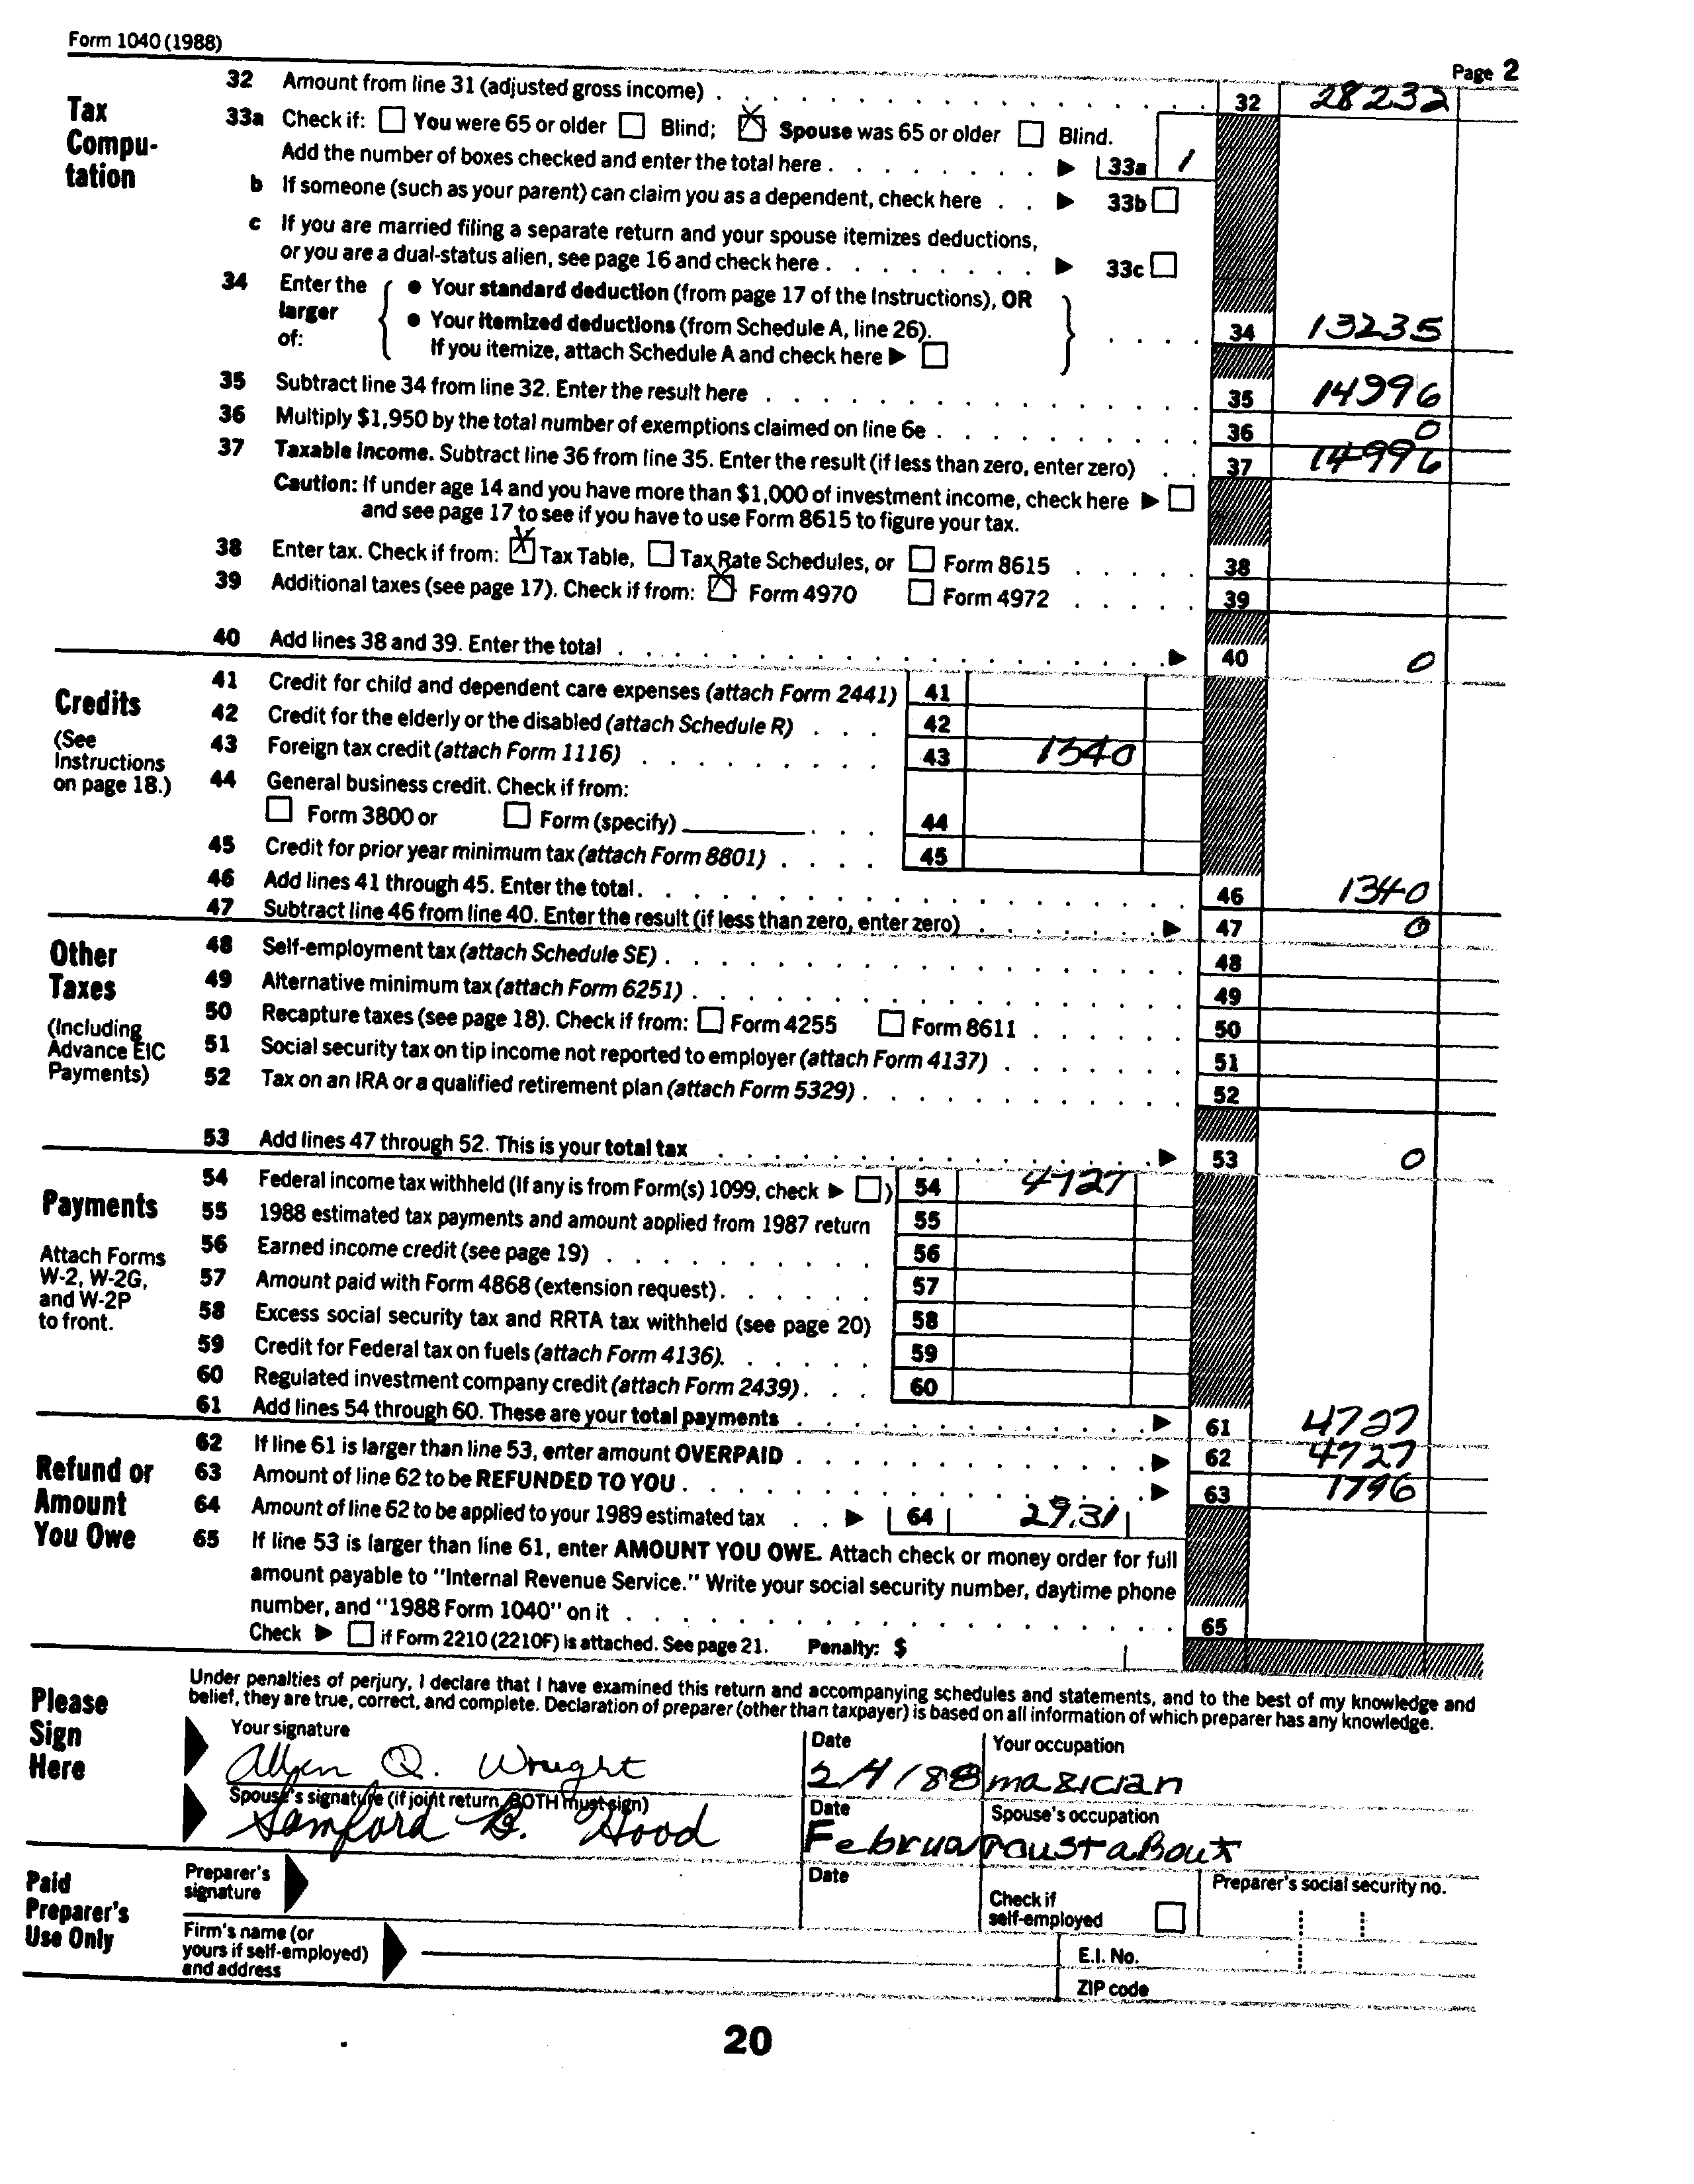 Form 1040 (1988)
Page 2
Tax Compu-
tation
32 Amount from line 31 (adjusted gross income) 32 28232
33a Check if: You were 65 or older Blind; Spouse was 65 or older Blind.
Add the number of boxes checked and enter the total here 33a 1
b If someone (such as your parent) can claim you as a dependent, check here 33b
c If you are married filing a separate return and your spouse itemizes deductions,
or you are a dual-status alien, see page 16 and check here 33c
34 Enter the larger of:
• Your standard deduction (from page 17 of the Instructions), OR
• Your itemized deductions (from Schedule A, line 26).
If you itemize, attach Schedule A and check here
34 13235
35 Subtract line 34 from line 32. Enter the result here 35 14996
36 Multiply $1,950 by the total number of exemptions claimed on line 6e 36 0
37 Taxable income. Subtract line 36 from line 35. Enter the result (if less than zero, enter zero) 37 14996
Caution: If under age 14 and you have more than $1,000 of investment income, check here
and see page 17 to see if you have to use Form 8615 to figure your tax.
38 Enter tax. Check if from: Tax Table, Tax Rate Schedules, or Form 8615 38
39 Additional taxes (see page 17). Check if from: Form 4970 Form 4972 39
40 Add lines 38 and 39. Enter the total 40 0
Credits
(See
Instructions
on page 18.)
41 Credit for child and dependent care expenses (attach Form 2441) 41
42 Credit for the elderly or the disabled (attach Schedule R) 42
43 Foreign tax credit (attach Form 1116) 43 1340
44 General business credit. Check if from:
Form 3800 or Form (specify) 44
45 Credit for prior year minimum tax (attach Form 8801) 45
46 Add lines 41 through 45. Enter the total 46 1340
47 Subtract line 46 from line 40. Enter the result (if less than zero, enter zero) 47 0
Other
Taxes
(Including
Advance EIC
Payments)
48 Self-employment tax (attach Schedule SE) 48
49 Alternative minimum tax (attach Form 6251) 49
50 Recapture taxes (see page 18). Check if from: Form 4255 Form 8611 50
51 Social security tax on tip income not reported to employer (attach Form 4137) 51
52 Tax on an IRA or a qualified retirement plan (attach Form 5329) 52
53 Add lines 47 through 52. This is your total tax 53 0
Payments
Attach Forms
W-2, W-2G,
and W-2P
to front.
54 Federal income tax withheld (If any is from Form(s) 1099, check ) 54 4727
55 1988 estimated tax payments and amount applied from 1987 return 55
56 Earned income credit (see page 19) 56
57 Amount paid with Form 4868 (extension request) 57
58 Excess social security tax and RRTA tax withheld (see page 20) 58
59 Credit for Federal tax on fuels (attach Form 4136) 59
60 Regulated investment company credit (attach Form 2439) 60
61 Add lines 54 through 60. These are your total payments 61 4727
Refund or
Amount
You Owe
62 If line 61 is larger than line 53, enter amount OVERPAID 62 4727
63 Amount of line 62 to be REFUNDED TO YOU 63 1796
64 Amount of line 62 to be applied to your 1989 estimated tax 64 29.31
65 If line 53 is larger than line 61, enter AMOUNT YOU OWE. Attach check or money order for full
amount payable to "Internal Revenue Service." Write your social security number, daytime phone
number, and "1988 Form 1040" on it 65
Check if Form 2210 (2210F) is attached. See page 21. Penalty: $
Please
Sign
Here
Under penalties of perjury, I declare that I have examined this return and accompanying schedules and statements, and to the best of my knowledge and
belief, they are true, correct, and complete. Declaration of preparer (other than taxpayer) is based on all information of which preparer has any knowledge.
Your signature Date Your occupation
Q. Wright 2/1/88 magician
Spouse's signature (if joint return, BOTH must sign) Date Spouse's occupation
Samford B. Hood Februa roustabout
Paid
Preparer's
Use Only
Preparer's
signature
Date
Check if
self-employed
Preparer's social security no.
Firm's name (or
yours if self-employed)
and address
E.I. No.
ZIP code
20